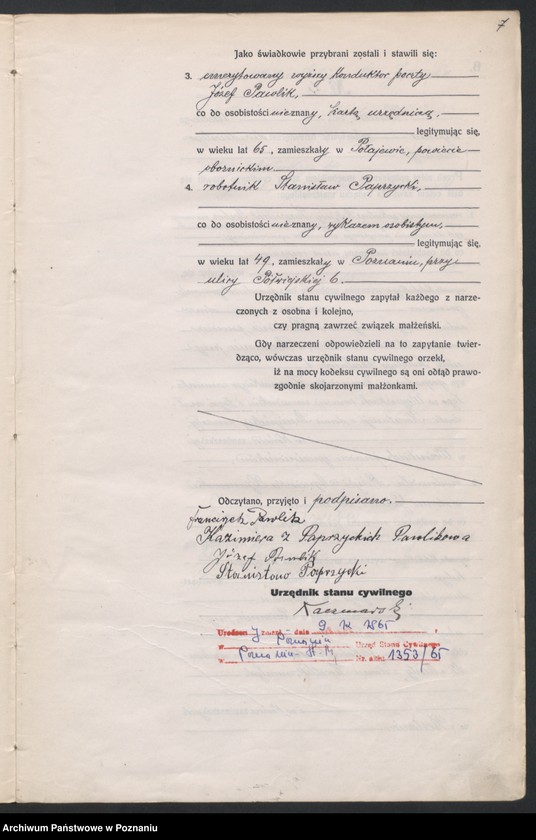 7
Jako świadkowie przybrani zostali i stawili się:
3. emerytowany wyższy konduktor poczty
Józef Pawlik,
co do osobistości nieznany, kartą urzędniczą,
legitymując się,
w wieku lat 65, zamieszkały w Połajewie, powiecie
obornickim
4. robotnik Stanisław Paprzycki,
co do osobistości nieznany, wykazem osobistym,
legitymując się,
w wieku lat 49, zamieszkały w Poznaniu, przy
ulicy Półwiejskiej 6.
Urzędnik stanu cywilnego zapytał każdego z narze-
czonych z osobna i kolejno,
czy pragną zawrzeć związek małżeński.
Gdy narzeczeni odpowiedzieli na to zapytanie twier-
dząco, wówczas urzędnik stanu cywilnego orzekł,
iż na mocy kodeksu cywilnego są oni odtąd prawo-
zgodnie skojarzonymi małżonkami.
Odczytano, przyjęto i podpisano.
Franciszek Pawlik
Kazimiera z Paprzyckich Pawlikowa
Józef Pawlik
Stanisław Paprzycki
Urzędnik stanu cywilnego
Kaczmarski
dnia 9. 1965 r.
w Poznaniu Urząd Stanu Cywilnego
w Nr. aktu 1353/65
Archiwum Państwowe w Poznaniu